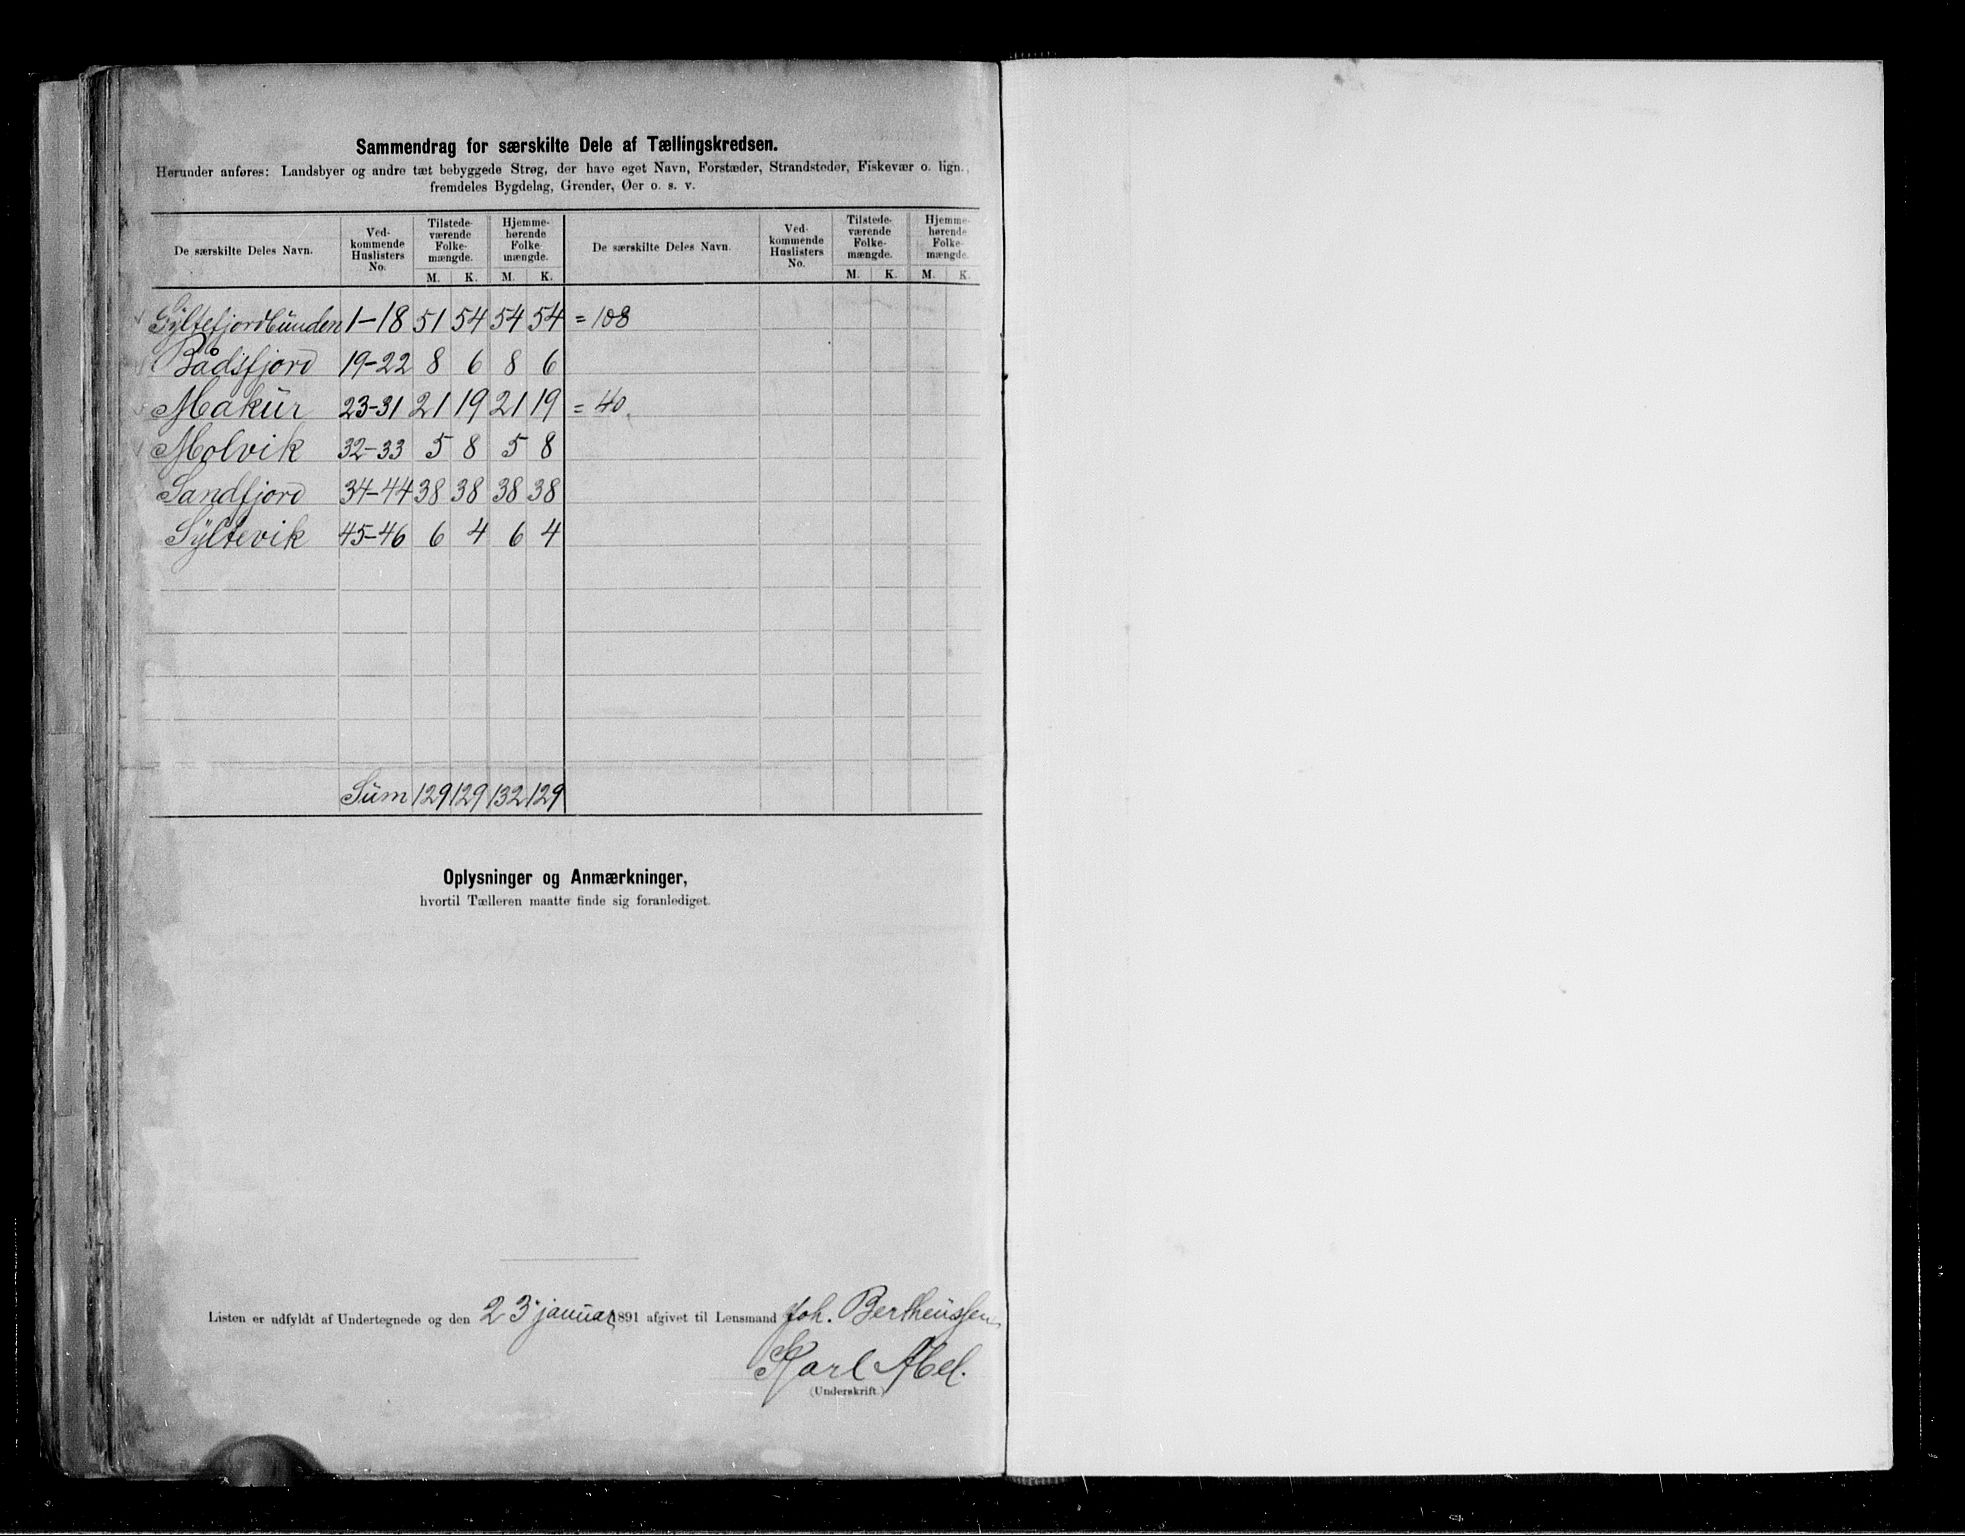 Sammendrag for særskilte Dele af Tællingskredsen.
Herunder anføres: Landsbyer og andre tæt bebyggede Strøg, der have eget Navn, Forstæder, Strandsteder, Fiskevær o. lign.,
fremdeles Bygdelag, Grender, Øer o. s. v.
De særskilte Deles Navn. Ved-kommende Huslisters No. Tilstede-værende Folke-mængde. Hjemme-hørende Folke-mængde. De særskilte Deles Navn. Ved-kommende Huslisters No. Tilstede-værende Folke-mængde. Hjemme-hørende Folke-mængde.
M. K. M. K. M. K. M. K.
Syltefjordbunden 1-18 51 54 54 54 = 108
Bådsfjord 19-22 8 6 8 6
Makur 23-31 21 19 21 19 = 40
Molvik 32-33 5 8 5 8
Sandfjord 34-44 38 38 38 38
Syltevik 45-46 6 4 6 4
Sum 129 129 132 129
Oplysninger og Anmærkninger,
hvortil Tælleren maatte finde sig foranlediget.
Listen er udfyldt af Undertegnede og den 23 januar 1891 afgivet til Lensmand Joh. Bertheussen
Karl Abel.
(Underskrift.)